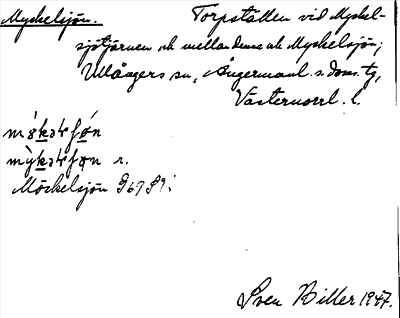 Myckelsjön. Torpställen vid Myckel-
sjötjärnen och mellan denna och Myckelsjön;
Ullångers sn, Ångermanl. s. doms. tg,
Västernorrl. l.
r.
Möckelsjön
Sven Biller 1947.